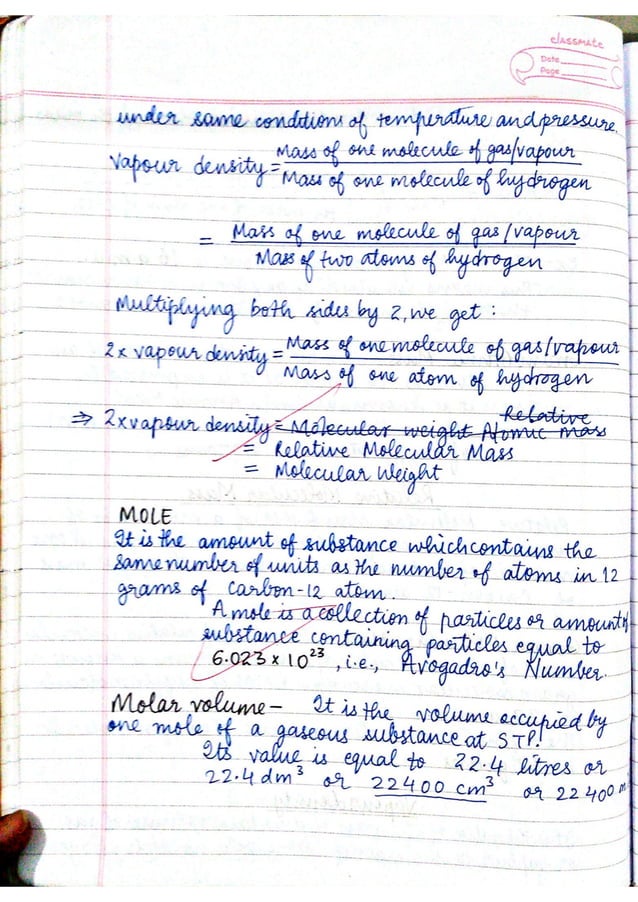 classmate
Date
Page
under same conditions of temperature and pressure.
Vapour density = Mass of one molecule of gas/vapour
Mass of one molecule of hydrogen
= Mass of one molecule of gas/vapour
Mass of two atoms of hydrogen
Multiplying both sides by 2, we get :
2 x vapour density = Mass of one molecule of gas/vapour
Mass of one atom of hydrogen
Relative
⇒ 2 x vapour density = Molecular weight Atomic mass
= Relative Molecular Mass
= Molecular Weight
MOLE
It is the amount of substance which contains the
same number of units as the number of atoms in 12
grams of carbon-12 atom.
A mole is a collection of particles or amount of
substance containing particles equal to
6.023 x 10²³, i.e., Avogadro's Number.
Molar volume - It is the volume occupied by
one mole of a gaseous substance at STP.
Its value is equal to 22.4 litres or
22.4 dm³ or 22400 cm³ or 22400 m